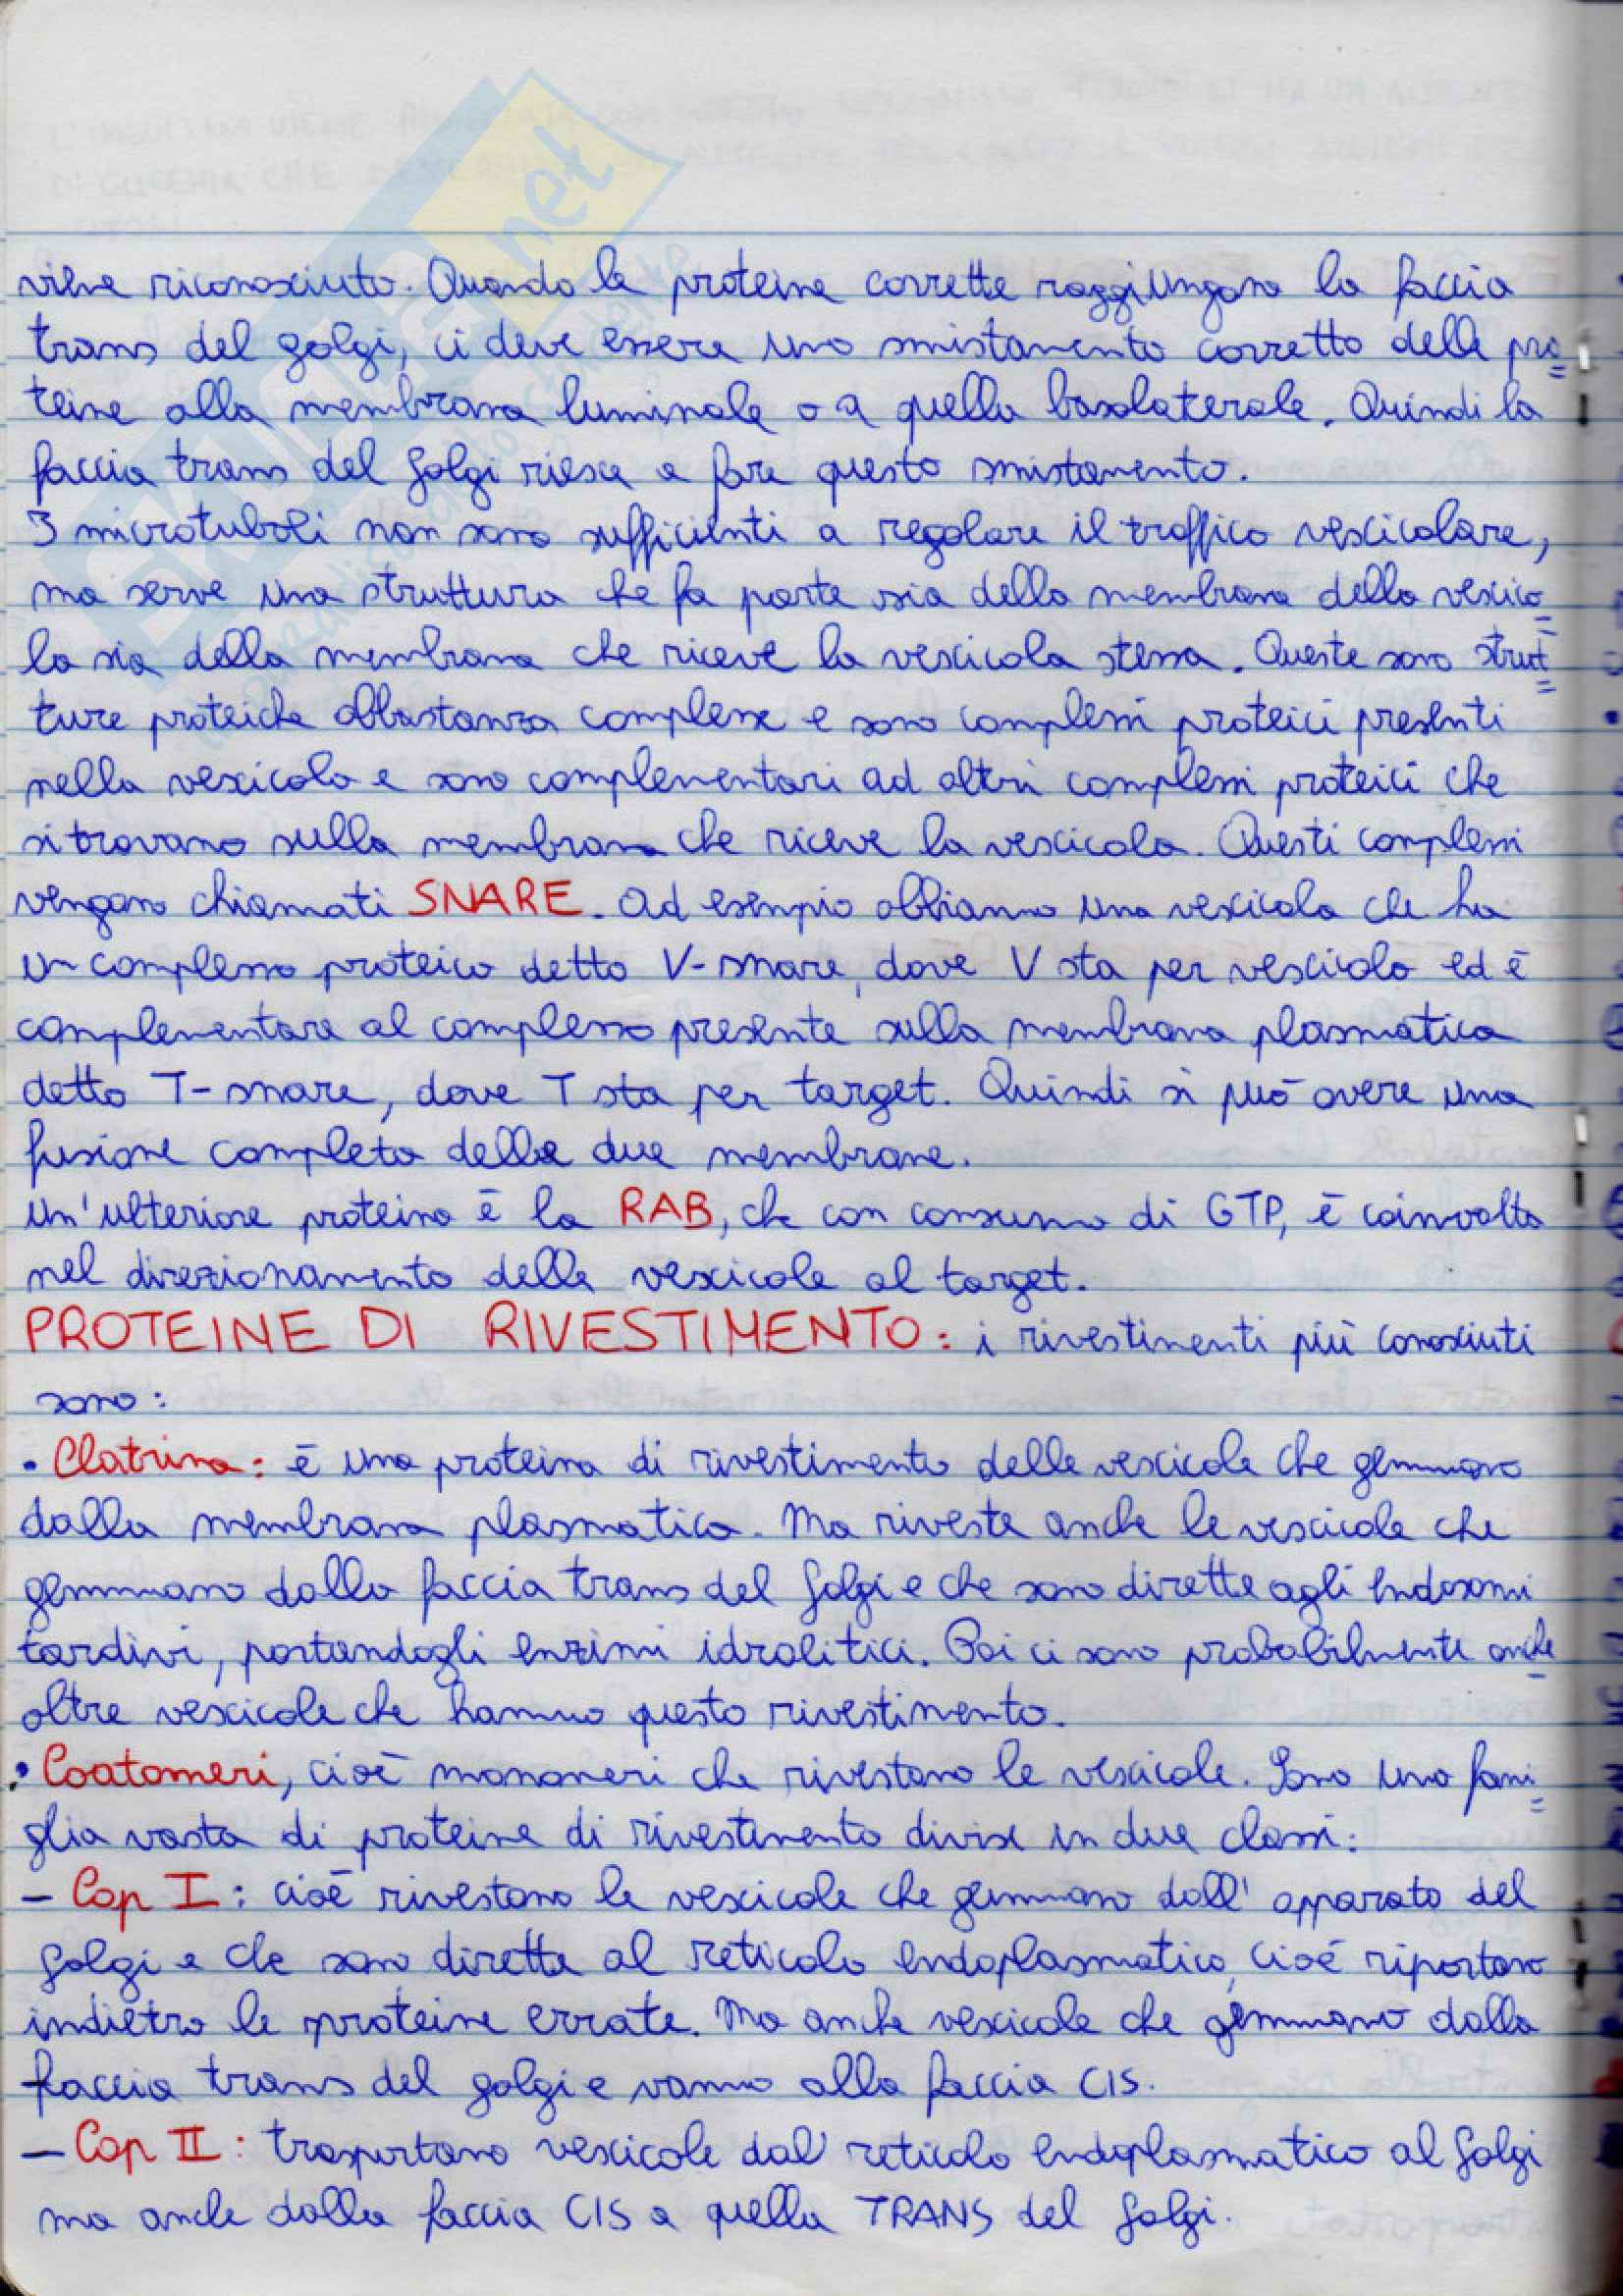 SKUOLA.net
viene riconosciuto. Quando le proteine corrette raggiungono la faccia
trans del golgi, ci deve essere uno smistamento corretto delle pro
teine alla membrana luminale o a quella basolaterale. Quindi la
faccia trans del Golgi riesce a fare questo smistamento.
I microtuboli non sono sufficienti a regolare il traffico vescicolare,
ma serve una struttura che fa parte sia della membrana della vescico
la sia della membrana che riceve la vescicola stessa. Queste sono strut
ture proteiche abbastanza complesse e sono complessi proteici presenti
nella vescicola e sono complementari ad altri complessi proteici che
si trovano sulla membrana che riceve la vescicola. Questi complessi
vengono chiamati SNARE. Ad esempio abbiamo una vescicola che ha
un complesso proteico detto V-snare, dove V sta per vescicola ed è
complementare al complesso presente sulla membrana plasmatica
detto T-snare, dove T sta per target. Quindi si può avere una
fusione completa delle due membrane.
Un'ulteriore proteina è la RAB, che con consumo di GTP, è coinvolta
nel direzionamento delle vescicole al target.
PROTEINE DI RIVESTIMENTO: i rivestimenti più conosciuti
sono:
• Clatrina: è una proteina di rivestimento delle vescicole che gemmano
dalla membrana plasmatica. Ma riveste anche le vescicole che
gemmano dalla faccia trans del Golgi e che sono dirette agli endosomi
tardivi, portandogli enzimi idrolitici. Poi ci sono probabilmente anche
altre vescicole che hanno questo rivestimento.
• Coatomeri, cioè monomeri che rivestono le vescicole. Sono una fami
glia vasta di proteine di rivestimento divise in due classi:
– Cop I: cioè rivestono le vescicole che gemmano dall'apparato del
Golgi e che sono dirette al reticolo endoplasmatico, cioè riportano
indietro le proteine errate. Ma anche vescicole che gemmano dalla
faccia trans del golgi e vanno alla faccia CIS.
– Cop II: trasportano vescicole dal reticolo endoplasmatico al Golgi
ma anche dalla faccia CIS a quella TRANS del Golgi.